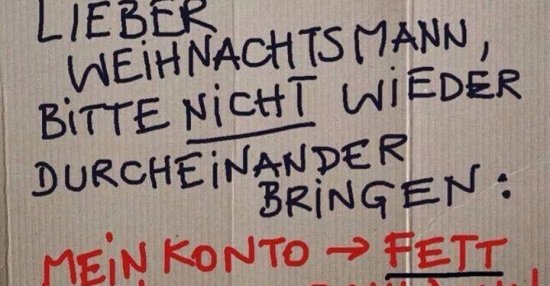 LIEBER
WEIHNACHTSMANN,
BITTE NICHT WIEDER
DURCHEINANDER
BRINGEN:
MEIN KONTO → FETT